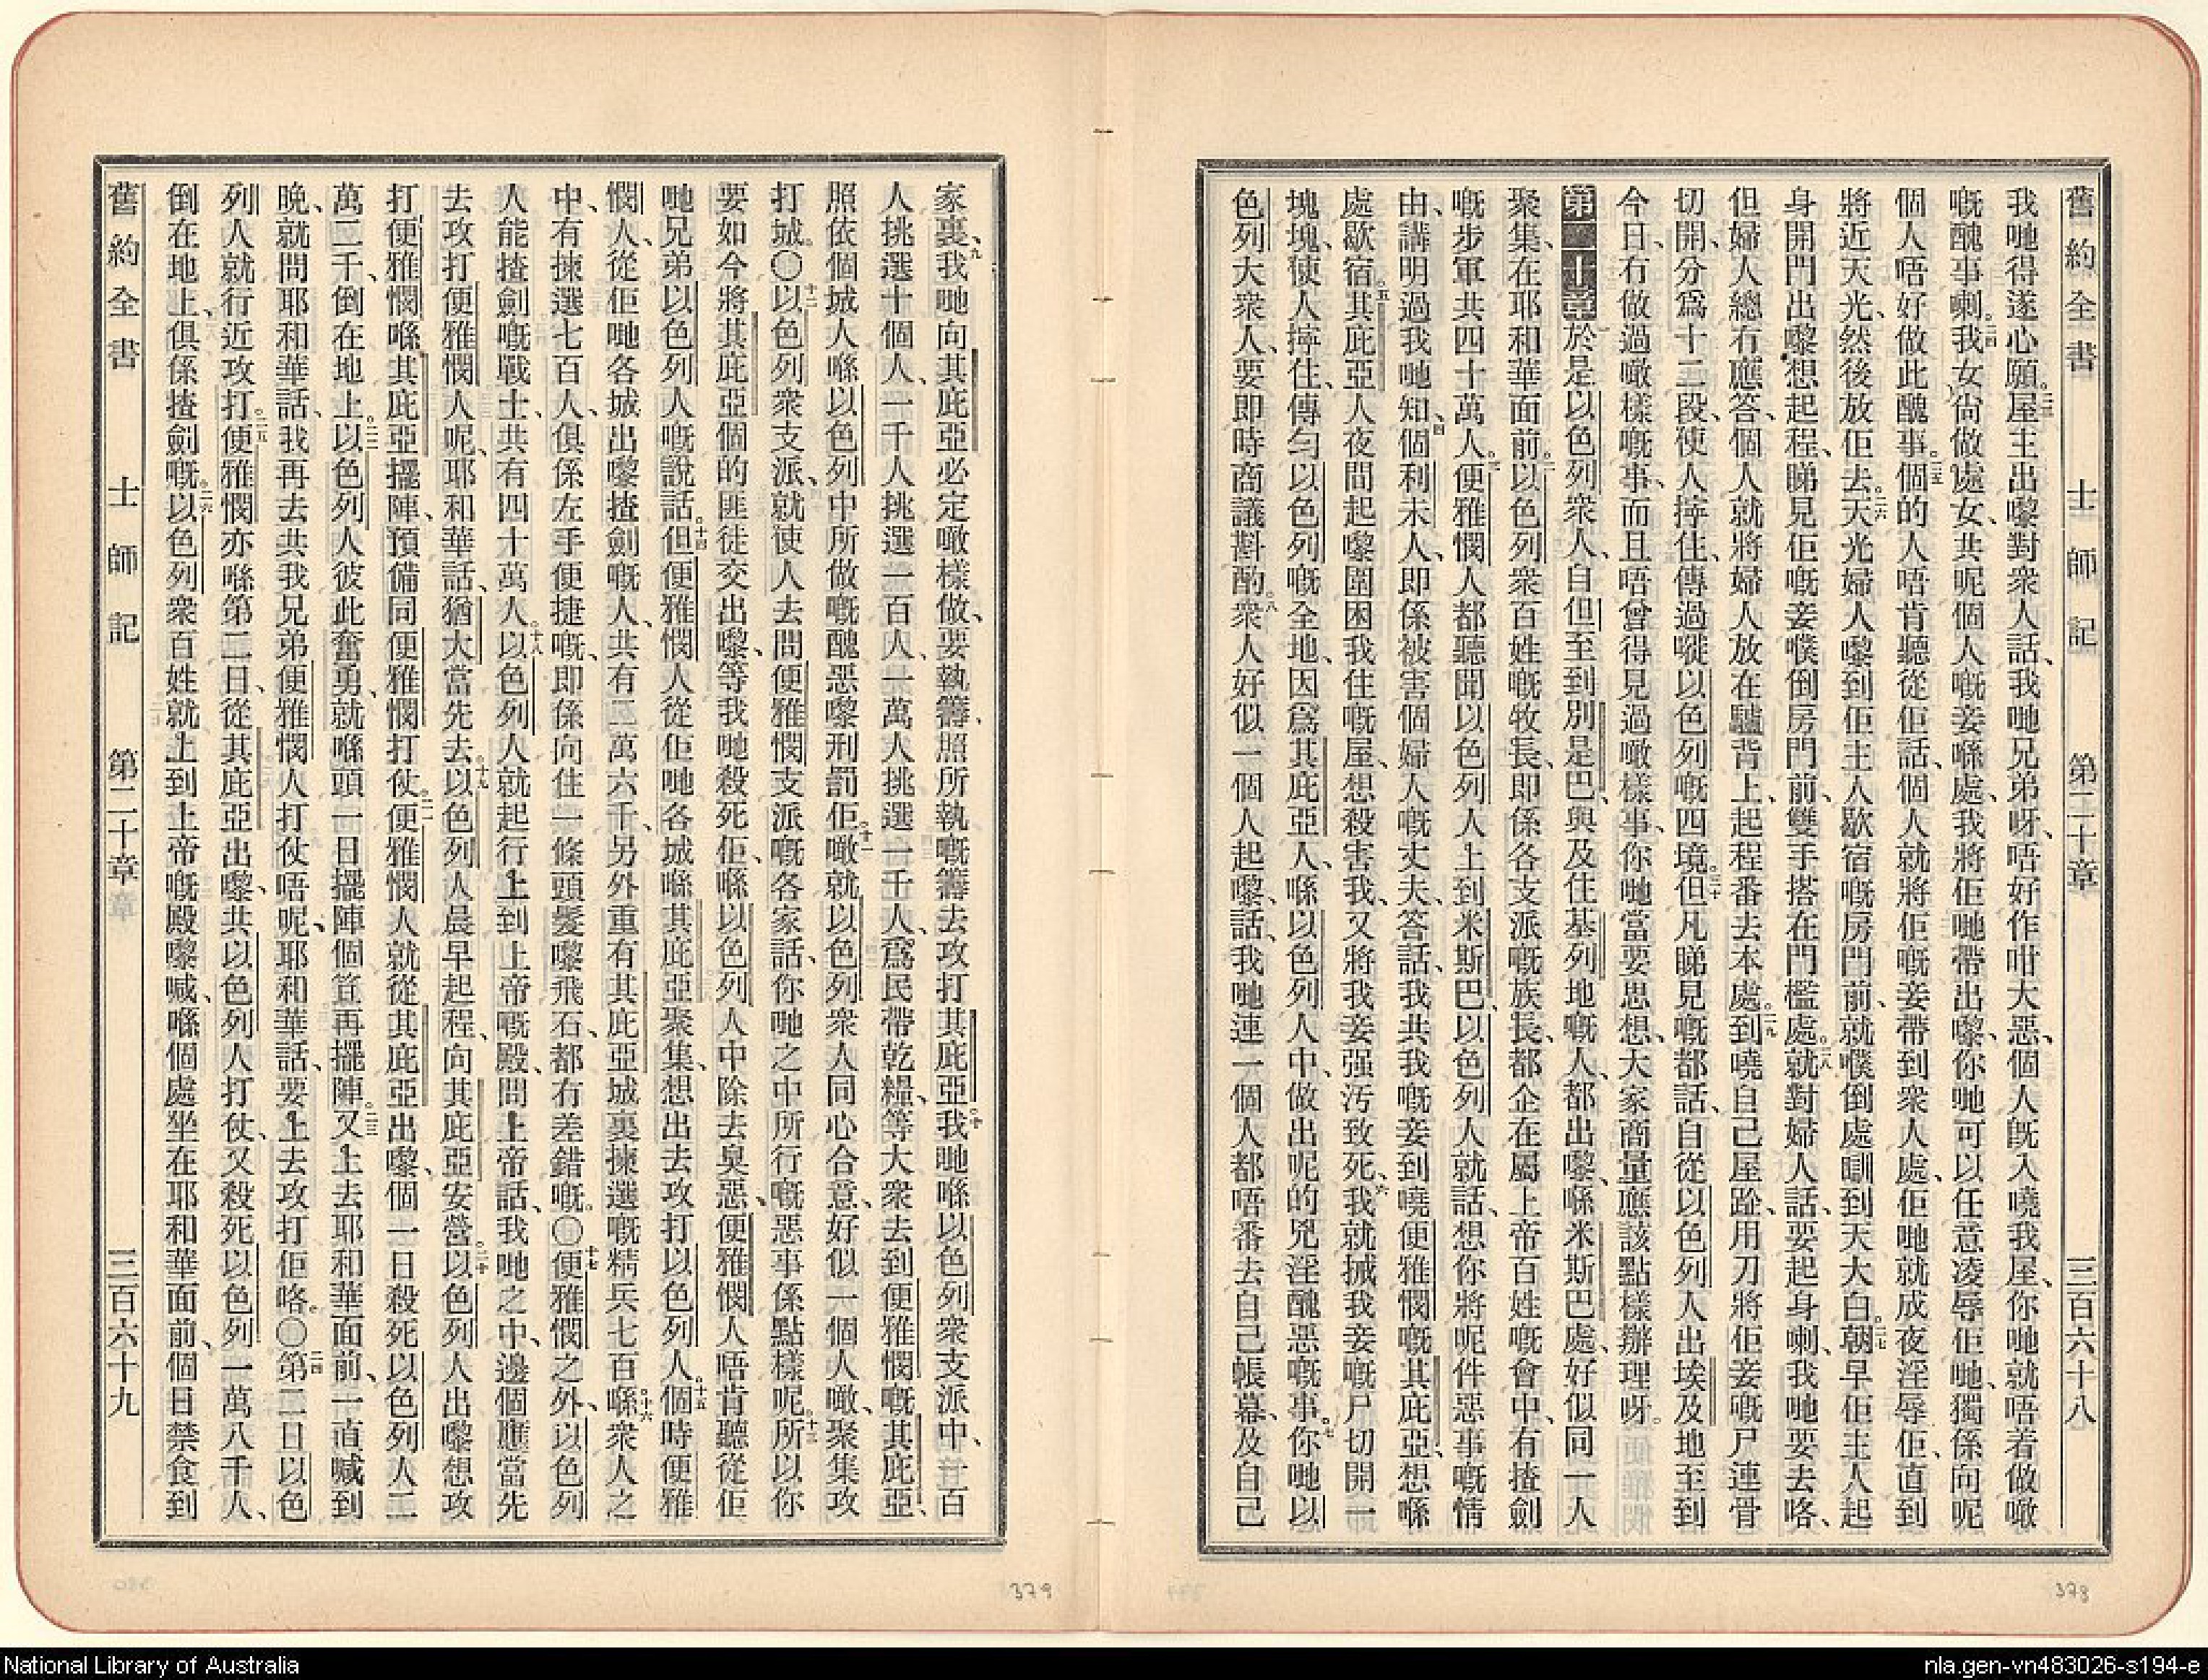 舊約全書　士師記　第二十章　三百六十八
我哋得遂心願。二三屋主出嚟對衆人話、我哋兄弟呀、唔好作咁大惡、個人旣入嘵我屋、你哋就唔着做噉
嘅醜事喇。二四我女尙做處女、共呢個人嘅妾喺處、我將佢哋帶出嚟、你哋可以任意凌辱佢哋、獨係向呢
個人唔好做此醜事。二五個的人唔肯聽從佢話、個人就將佢嘅妾帶到衆人處、佢哋就成夜淫辱佢、直到
將近天光、然後放佢去。二六天光婦人嚟到佢主人歇宿嘅房門前、就㒒倒處瞓到天大白。二七朝早佢主人起
身開門出嚟、想起程、睇見佢嘅妾㒒倒房門前、雙手搭在門檻處。二八就對婦人話、要起身喇、我哋要去咯、
但婦人總冇應答、個人就將婦人放在驢背上、起程番去本處。二九到嘵自己屋𧿨、用刀將佢妾嘅尸連骨
切開、分爲十二段、使人擰住、傳過嗮以色列嘅四境。三十但凡睇見嘅都話、自從以色列人出埃及地至到
今日、冇做過噉樣嘅事、而且唔曾得見過噉樣事、你哋當要思想、大家商量應該點樣辦理呀。
第二十章　一於是以色列衆人、自但至到別是巴、與及住基列地嘅人、都出嚟、喺米斯巴處、好似同一人
聚集、在耶和華面前。二以色列衆百姓嘅牧長、卽係各支派嘅族長、都企在屬上帝百姓嘅會中、有揸劍
嘅步軍共四十萬人。三便雅憫人都聽聞以色列人上到米斯巴、以色列人就話、想你將呢件惡事嘅情
由、講明過我哋知、四個利未人、卽係被害個婦人嘅丈夫、答話、我共我嘅妾到嘵便雅憫嘅其庇亞、想喺
處歇宿。五其庇亞人夜間起嚟圍困我住嘅屋、想殺害我、又將我妾强污致死、六我就搣我妾嘅尸切開一
塊塊、使人擰住、傳勻以色列嘅全地、因爲其庇亞人、喺以色列人中、做出呢的兇淫醜惡嘅事。七你哋以
色列大衆人、要卽時商議斟酌。八衆人好似一個人起嚟、話、我哋連一個人都唔番去自己帳幕、及自己
舊約全書　士師記　第二十章　三百六十九
家裏、九我哋向其庇亞必定噉樣做、要執籌、照所執嘅籌去攻打其庇亞。十我哋喺以色列衆支派中、一百
人挑選十個人、一千人挑選一百人、一萬人挑選一千人、爲民帶乾糧、等大衆去到便雅憫嘅其庇亞、
照依個城人喺以色列中所做嘅醜惡嚟刑罰佢。十一噉就以色列衆人同心合意、好似一個人噉、聚集攻
打城。〇十二以色列衆支派、就使人去問便雅憫支派嘅各家話、你哋之中所行嘅惡事係點樣呢。十三所以你
要如今將其庇亞個的匪徒交出嚟、等我哋殺死佢、喺以色列人中除去臭惡、便雅憫人唔肯聽從佢
哋兄弟以色列人嘅說話。十四但便雅憫人從佢哋各城喺其庇亞聚集、想出去攻打以色列人。十五個時便雅
憫人、從佢哋各城出嚟揸劍嘅人、共有二萬六千、另外重有其庇亞城裏揀選嘅精兵七百。十六喺衆人之
中、有揀選七百人、俱係左手便捷嘅、卽係向住一條頭髮嚟飛石、都冇差錯嘅。〇十七便雅憫之外、以色列
人能揸劍嘅戰士、共有四十萬人。十八以色列人就起行上到上帝嘅殿、問上帝話、我哋之中、邊個應當先
去攻打便雅憫人呢、耶和華話、猶大當先去。十九以色列人晨早起程、向其庇亞安營。二十以色列人出嚟想攻
打便雅憫喺其庇亞擺陣、預備同便雅憫打仗。二一便雅憫人就從其庇亞出嚟、個一日殺死以色列人二
萬二千、倒在地上。二二以色列人彼此奮勇、就喺頭一日擺陣個笪再擺陣。二三又上去耶和華面前、一直喊到
晚、就問耶和華話、我再去共我兄弟便雅憫人打仗唔呢、耶和華話、要上去攻打佢咯。〇二四第二日以色
列人就行近攻打。二五便雅憫亦喺第二日、從其庇亞出嚟、共以色列人打仗、又殺死以色列一萬八千人、
倒在地上、俱係揸劍嘅。二六以色列衆百姓就上到上帝嘅殿嚟喊、喺個處坐在耶和華面前、個日禁食到
378
379
National Library of Australia
nla.gen-vn483026-s194-e